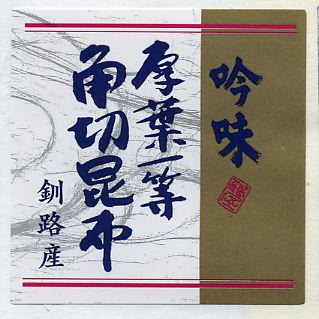 吟味
厚葉一等
角切昆布
釧路産